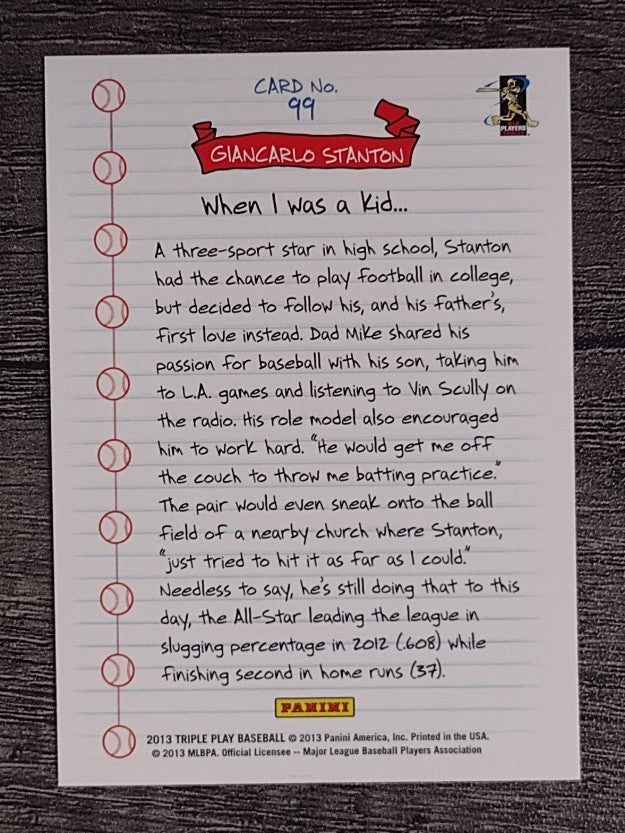 CARD No.
99
PLAYERS
GIANCARLO STANTON
When I was a Kid...
A three-sport star in high school, Stanton
had the chance to play football in college,
but decided to follow his, and his father's,
first love instead. Dad Mike shared his
passion for baseball with his son, taking him
to L.A. games and listening to Vin Scully on
the radio. His role model also encouraged
him to work hard. "He would get me off
the couch to throw me batting practice."
The pair would even sneak onto the ball
field of a nearby church where Stanton,
"just tried to hit it as far as I could."
Needless to say, he's still doing that to this
day, the All-Star leading the league in
slugging percentage in 2012 (.608) while
finishing second in home runs (37).
PANINI
2013 TRIPLE PLAY BASEBALL © 2013 Panini America, Inc. Printed in the USA.
© 2013 MLBPA. Official Licensee -- Major League Baseball Players Association